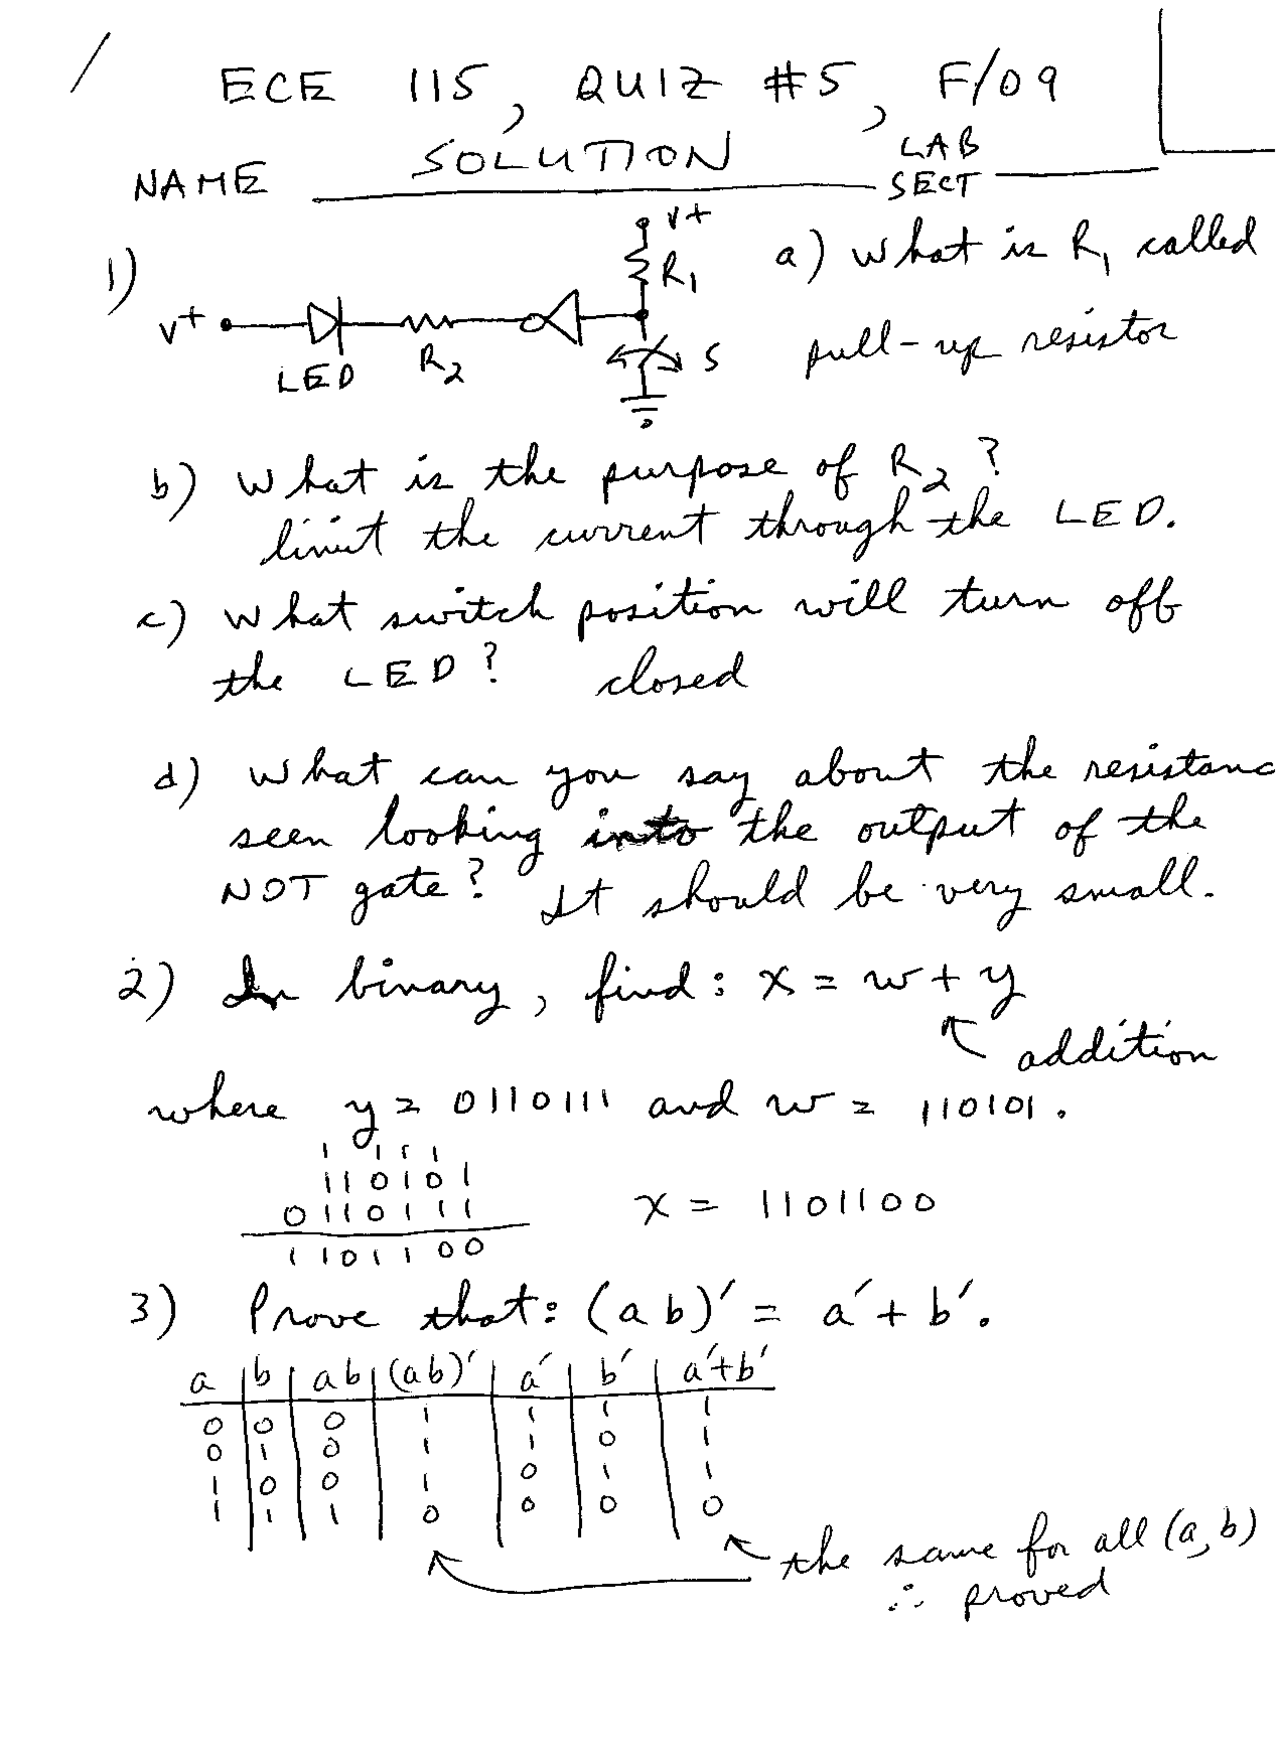 ECE 115, QUIZ #5, F/09
NAME SOLUTION LAB SECT
1)
V+
R1
V+
LED
R2
S
a) What is R1 called
pull-up resistor
b) What is the purpose of R2?
limit the current through the LED.
c) What switch position will turn off
the LED? closed
d) What can you say about the resistanc
seen looking into the output of the
NOT gate? It should be very small.
2) In binary, find: x = w + y
addition
where y = 0110111 and w = 110101.
1 1 1 1
110101
0110111
1101100
x = 1101100
3) Prove that: (ab)' = a' + b'.
a b ab (ab)' a' b' a'+b'
0 0 0 1 1 1 1
0 1 0 1 1 0 1
1 0 0 1 0 1 1
1 1 1 0 0 0 0
the same for all (a,b)
∴ proved